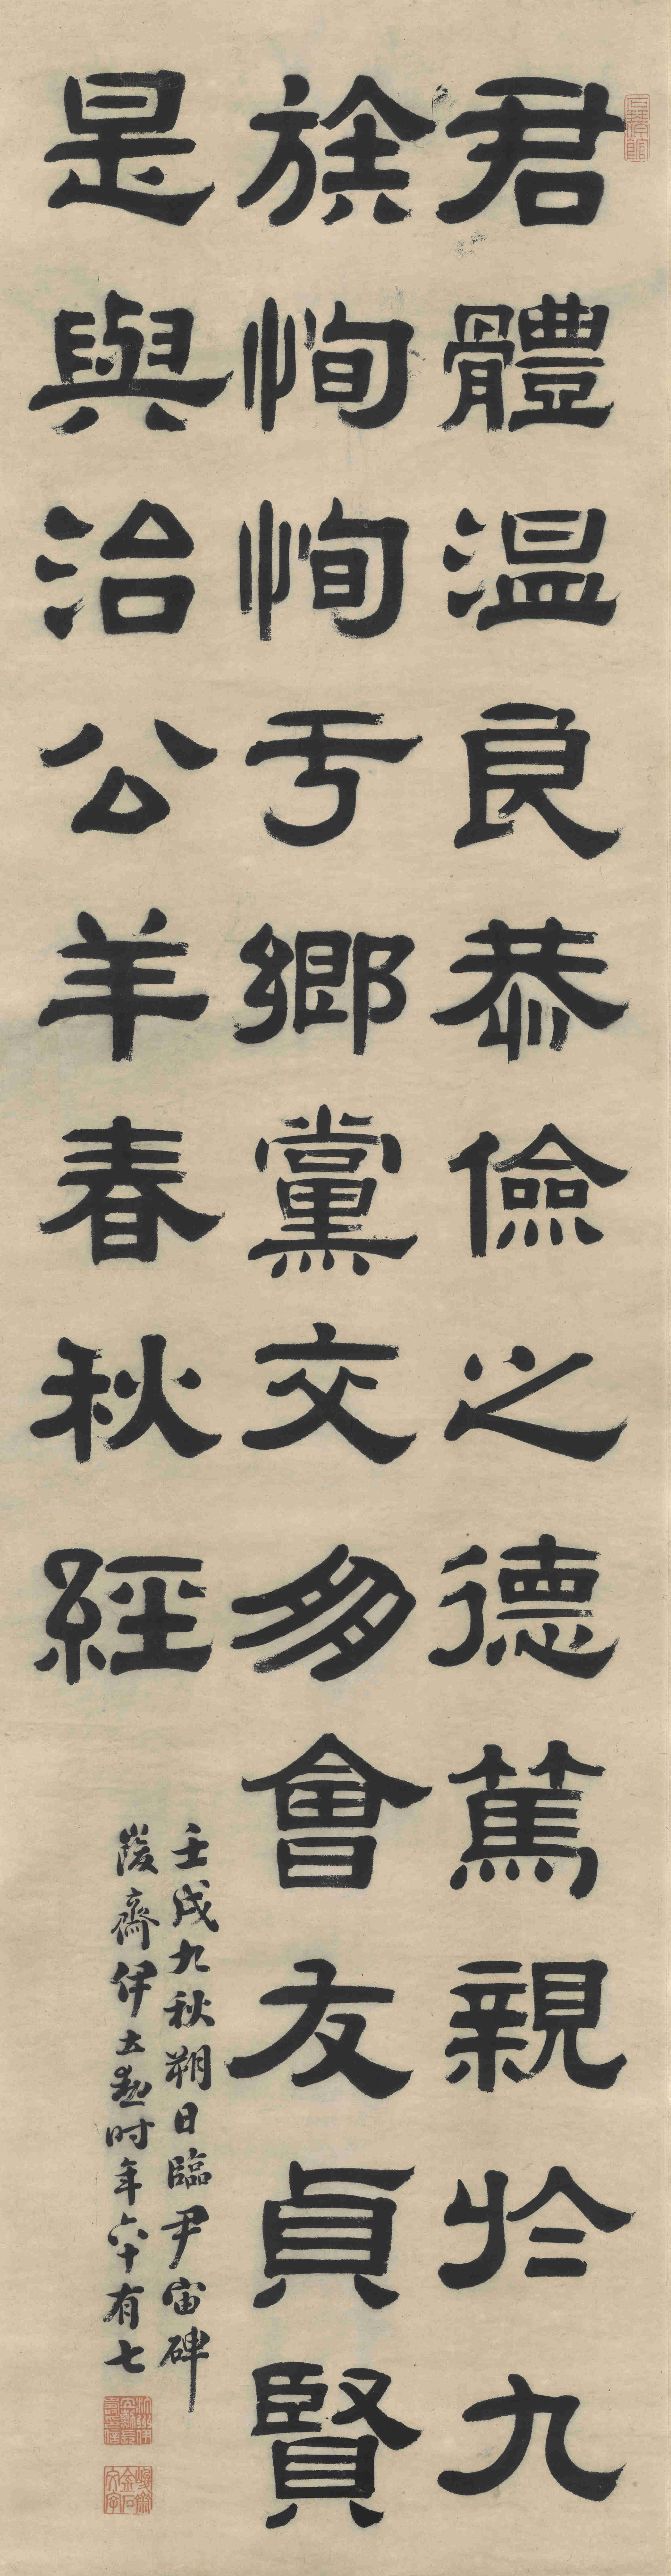 君體温良恭儉之德篤親於九
族恂恂于鄉黨交多會友貞賢
是與治公羊春秋經
壬戌九秋朔日臨尹宙碑
峻齋伊立勳時年六十有七